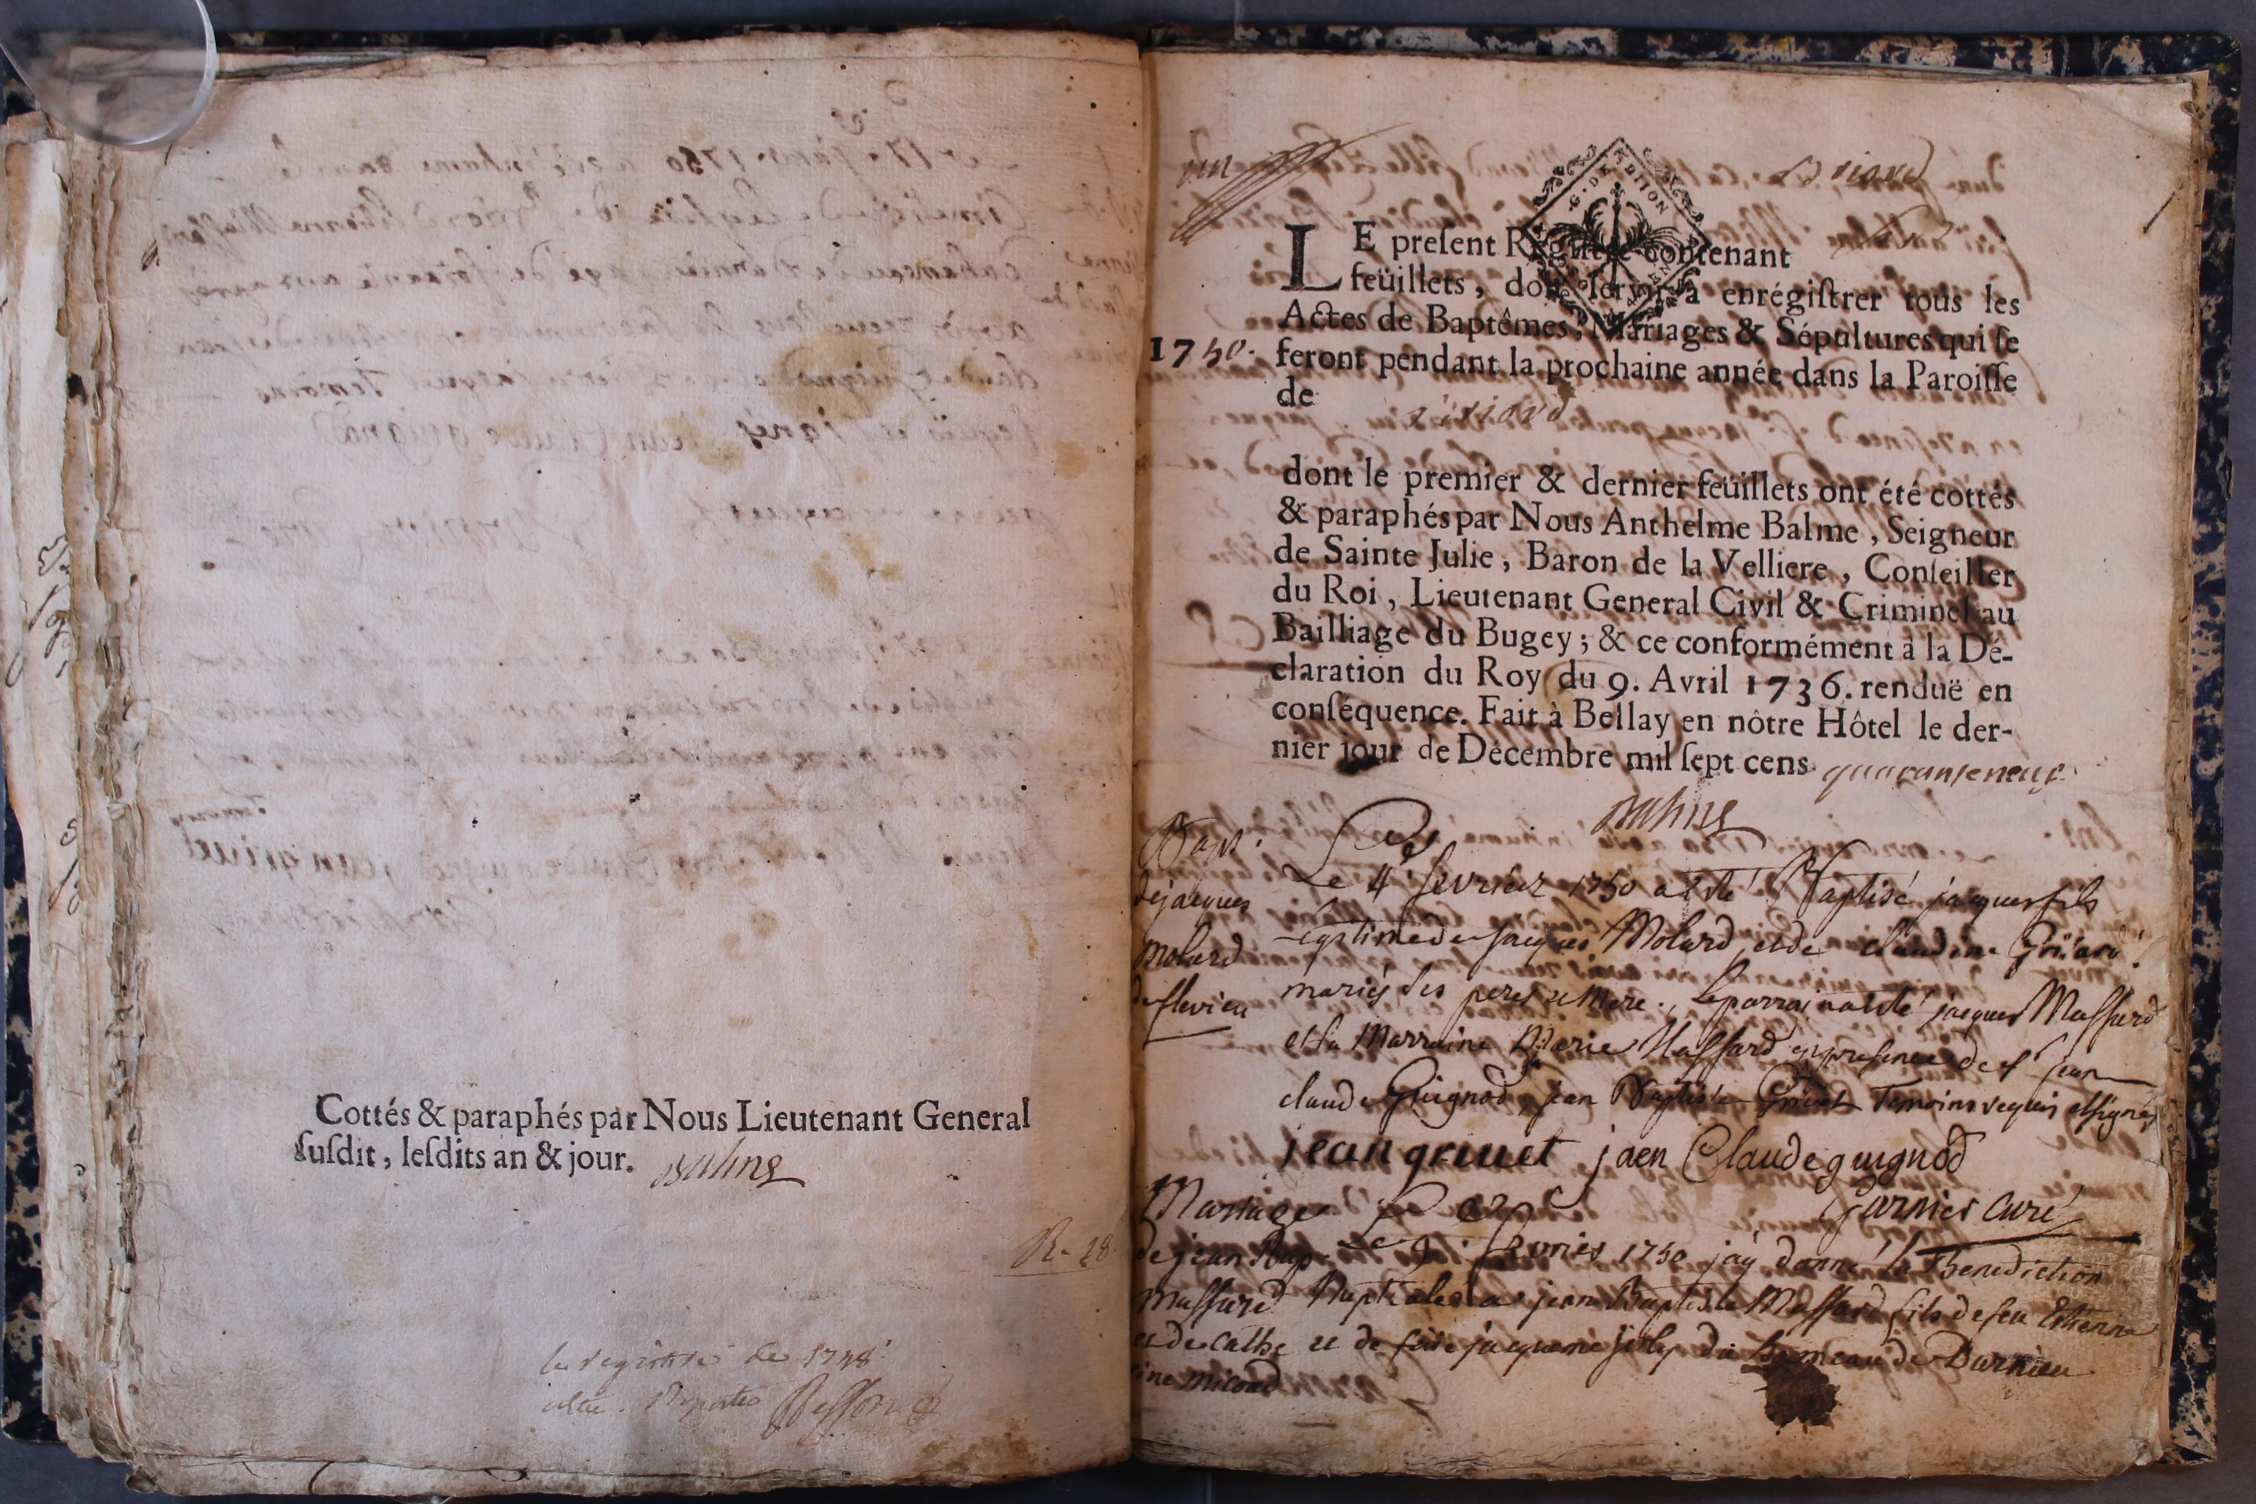 Cottés & paraphés par Nous Lieutenant General
susdit, lesdits an & jour. Balme
R. 28
le registre de 1748
un
Briord
G. DE DIJON
LE present Régistre contenant
feüillets, doit servir à enrégistrer tous les
Actes de Baptêmes, Mariages & Sépultures qui se
1750. feront pendant la prochaine année dans la Paroisse
de Briord
dont le premier & dernier feüillets ont été cottés
& paraphés par Nous Anthelme Balme, Seigneur
de Sainte Julie, Baron de la Velliere, Conseiller
du Roi, Lieutenant General Civil & Criminel au
Bailliage du Bugey; & ce conformément à la Dé-
claration du Roy du 9. Avril 1736. renduë en
conséquence. Fait à Bellay en nôtre Hôtel le der-
nier jour de Décembre mil sept cens quaranteneuf
Balme
Bapt.
de jacques
molard
de flevieu
Le 4 fevrier 1750 a esté Baptisé jacques fils
legitime de jacques Molard et de claudine
mariés ses peres et mere. le parrain a esté jacques Massard
et la Marraine Marie Massard en presence de s^r jean
claude Guignod, jean Baptiste Grinet Temoins requis et signés
jean grinet jaen Claude guignod
garnier curé
Mariage
de jean Bap.
massard
et de cathe
rine micoud
Le 9 fevrier 1750 j'ay donné la Benediction
Nuptiale a jean Baptiste Massard fils de feu Etienne
et de feüe jacquemé du hameau de Darnieu